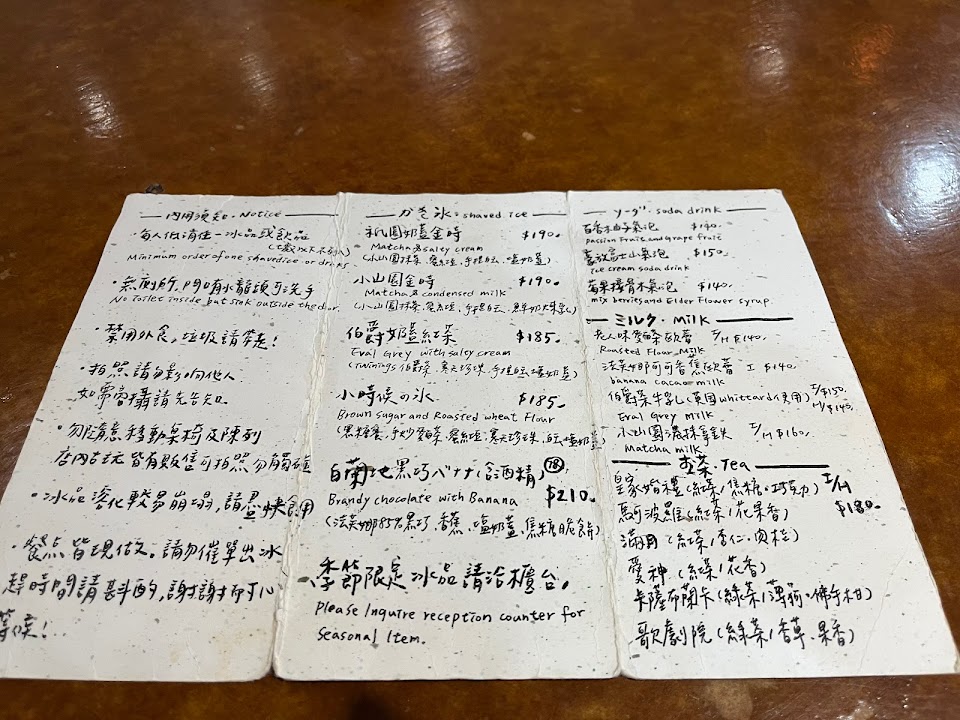 內用須知・Notice
・每人低消任一冰品或飲品
(七歲以下不列入)
Minimum order of one shaved ice or drinks
・無廁所,門口有水龍頭可洗手
No Toilet inside but sink outside the door.
・禁用外食,垃圾請帶走!
・拍照請勿影响他人
如需客攝請先告知。
・勿隨意移動桌椅及陳列
店內古玩皆有販售可拍照勿觸碰
・冰品溶化較易崩塌,請盡快食用
・餐点皆現做。請勿催單出冰
趕時間請斟酌,謝謝耐心
等候!
かき氷・shaved ice
祇園奶蓋金時 $190.
Matcha & salty cream
(小山園抹茶、蜜紅豆、手捏白玉、鹽奶蓋)
小山園金時 $190.
Matcha & condensed milk
(小山園抹茶、蜜紅豆、手捏白玉、鮮奶煉乳)
伯爵奶蓋紅茶 $185.
Eval Grey with salty cream
(Twinings伯爵茶、寒天珍珠、手捏白玉、鹽奶蓋)
小時候の氷 $185.
Brown sugar and Roasted wheat Flour
(黑糖蜜、手炒麵茶、蜜紅豆、寒天珍珠、白玉、鹽奶蓋)
白蘭地黑巧バナナ(含酒精) 18
Brandy chocolate with Banana $210.
(法芙娜85%黑巧、香蕉、鹽奶蓋、焦糖脆餅)
季節限定冰品請洽櫃台。
Please Inquire reception counter for
Seasonal Item.
ソーダ・soda drink
百香柚子氣泡 $140.
Passion Fruit and Grape fruit
富士山氣泡 $150.
Ice cream soda drink
莓果接骨木氣泡 $140.
mix berries and Elder Flower syrup.
ミルク・Milk
老人味麵茶歐蕾 I/H $140.
Roasted Flour Milk
法芙娜可可香蕉歐蕾 I $140.
banana cacao milk
伯爵茶牛乳(英國whittard使用) I/$150. H/$145.
Eval Grey Milk
小山園濃抹拿鉄 I/H $160.
Matcha milk
お茶・Tea
皇家婚禮(綠茶/焦糖・巧克力) I/H
馬可波羅(紅茶/花果香) $180.
滿月(紅茶/杏仁・肉桂)
愛神(紅茶/花香)
卡薩布蘭卡(綠茶/薄荷・佛手柑)
歌劇院(綠茶/香草、果香)